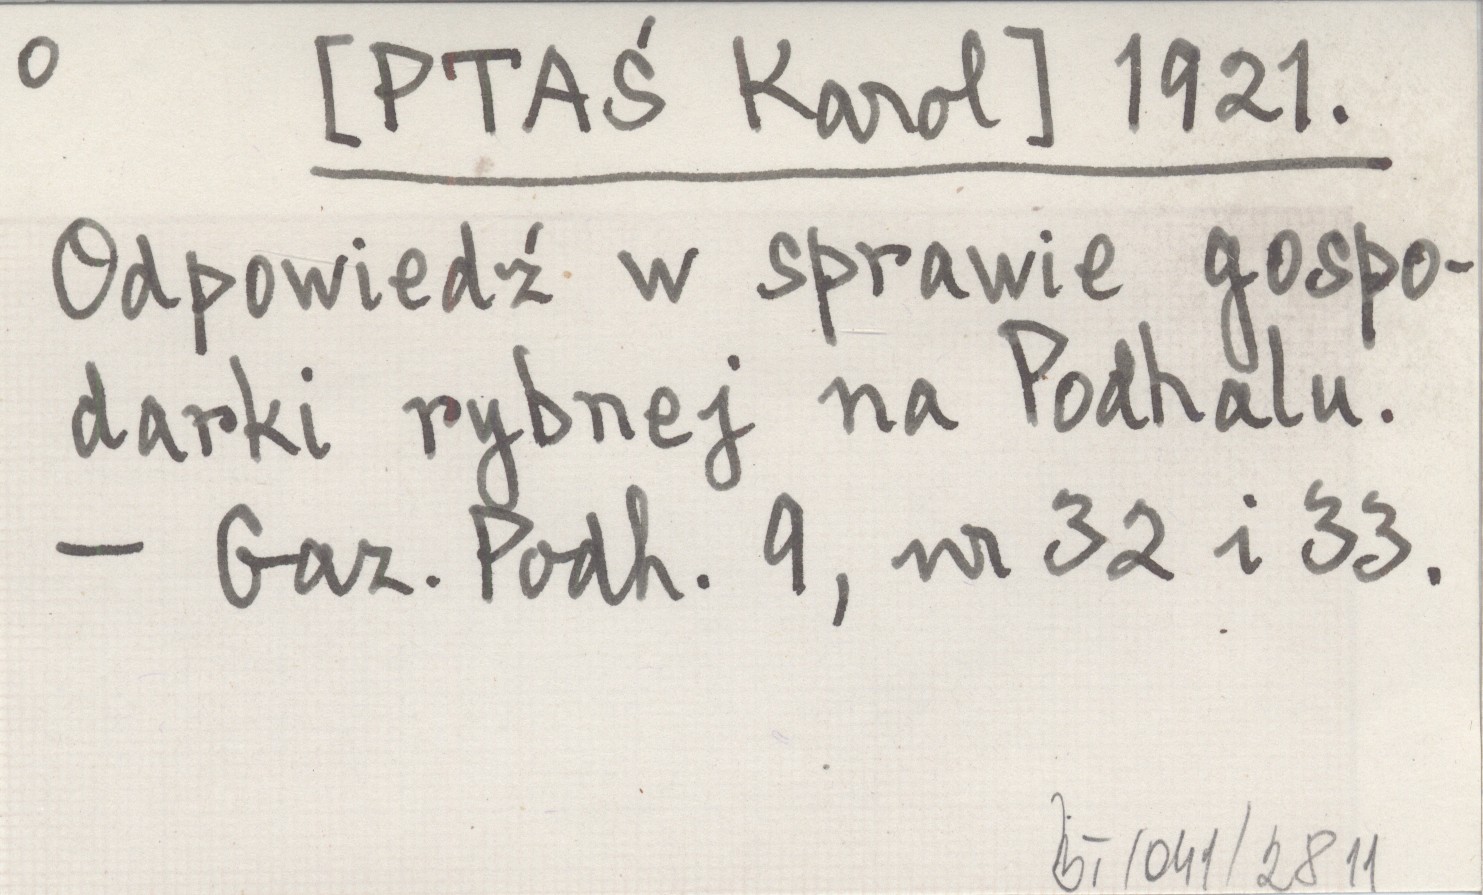 o [PTAŚ Karol] 1921.
Odpowiedź w sprawie gospo-
darki rybnej na Podhalu.
— Gaz. Podh. 9, nr 32 i 33.
/041/2811